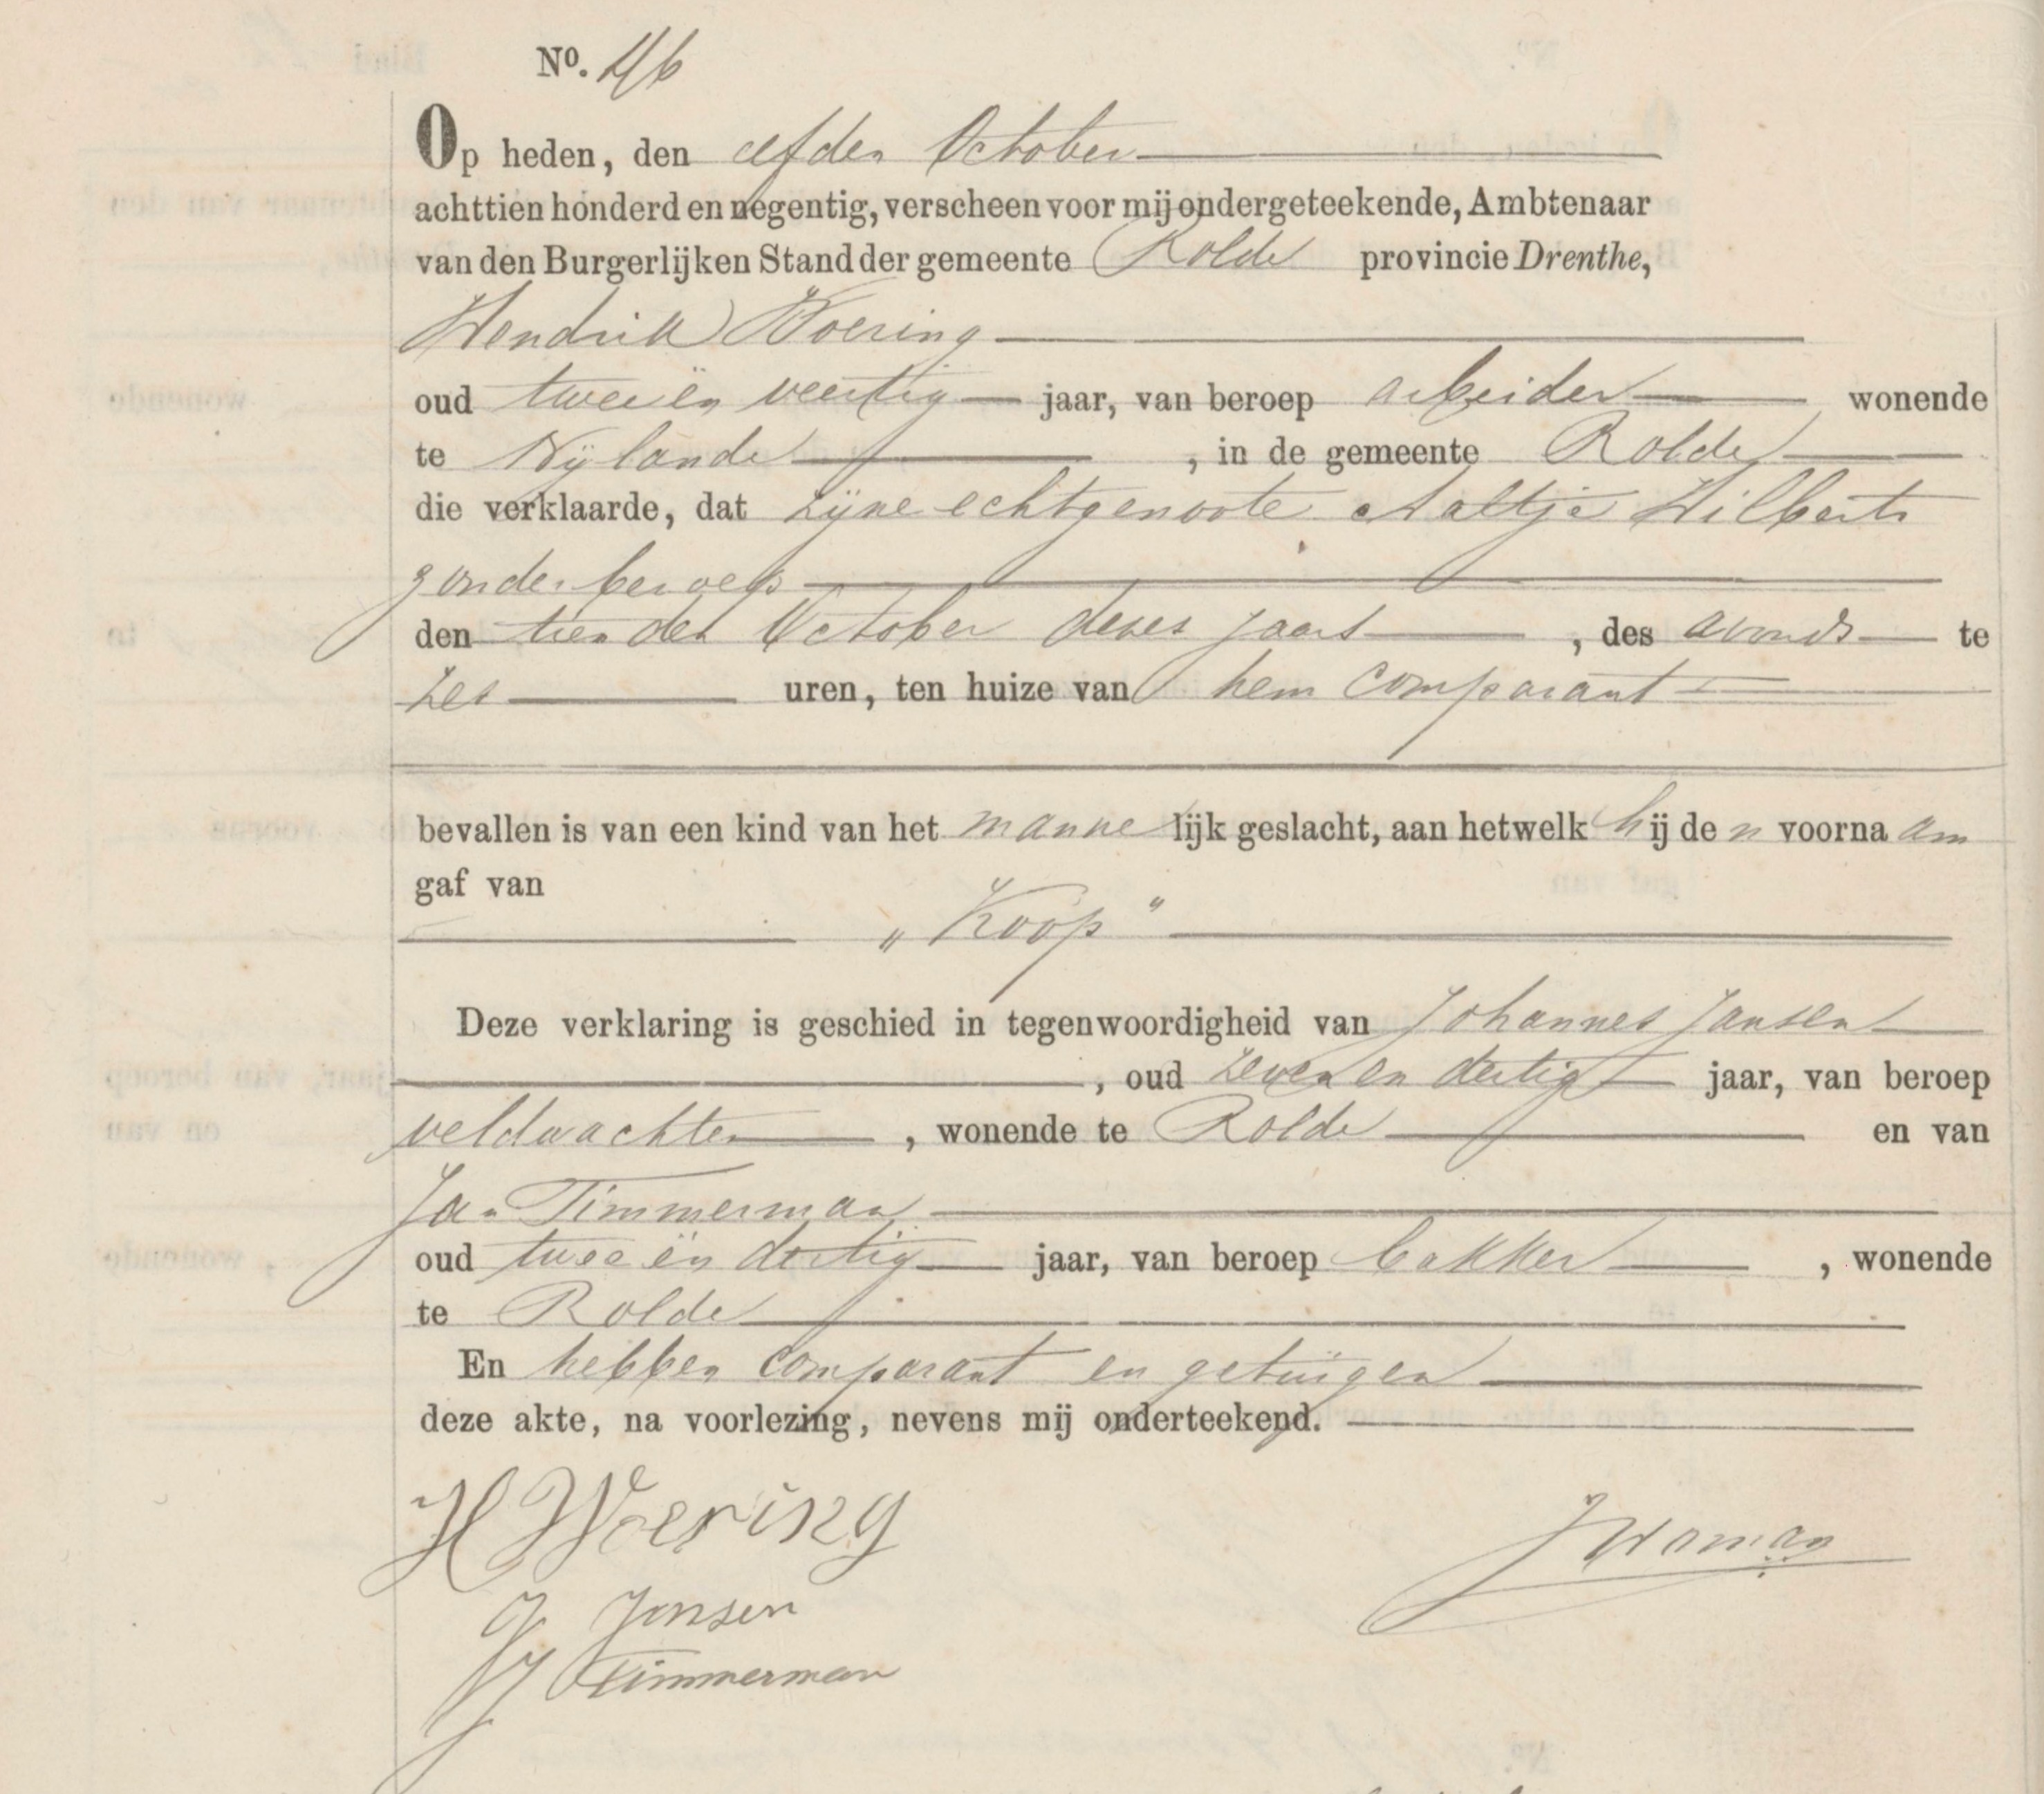 No. 46
Op heden, den elfden October
achttien honderd en negentig, verscheen voor mij ondergeteekende, Ambtenaar
van den Burgerlijken Stand der gemeente Rolde provincie Drenthe,
Hendrik Woering
oud twee ën veertig jaar, van beroep arbeider wonende
te Nijlande , in de gemeente Rolde
die verklaarde, dat zijne echtgenoote Aaltje Hilberts
zonder beroep
den tienden October dezes jaars , des avonds te
zes uren, ten huize van hem comparant
bevallen is van een kind van het mannelijk geslacht, aan hetwelk hij den voornaam
gaf van
„Koop"
Deze verklaring is geschied in tegenwoordigheid van Johannes Jansen
, oud zeven en dertig jaar, van beroep
veldwachter , wonende te Rolde en van
Jan Timmerman
oud twee ën dertig jaar, van beroep bakker , wonende
te Rolde
En hebben comparant en getuigen
deze akte, na voorlezing, nevens mij onderteekend.
H Woering
J Homan
J Jansen
J Timmerman